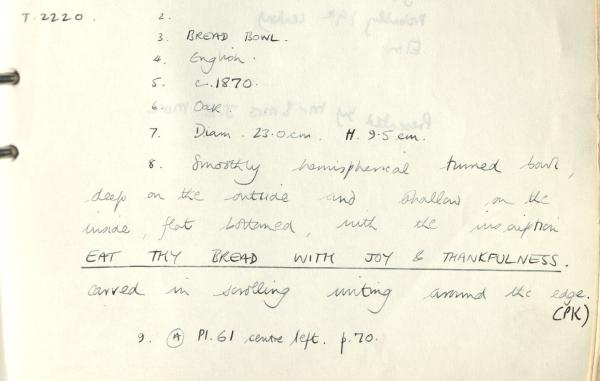 T.2220. 2.
3. BREAD BOWL.
4. English.
5. c.1870.
6. Oak.
7. Diam. 23.0cm. H. 9.5cm.
8. Smoothly hemispherical turned bowl,
deep on the outside and shallow on the
inside, flat bottomed, with the inscription
EAT THY BREAD WITH JOY & THANKFULNESS.
carved in scrolling writing around the edge.
(PK)
9. A Pl.61 centre left. p.70.